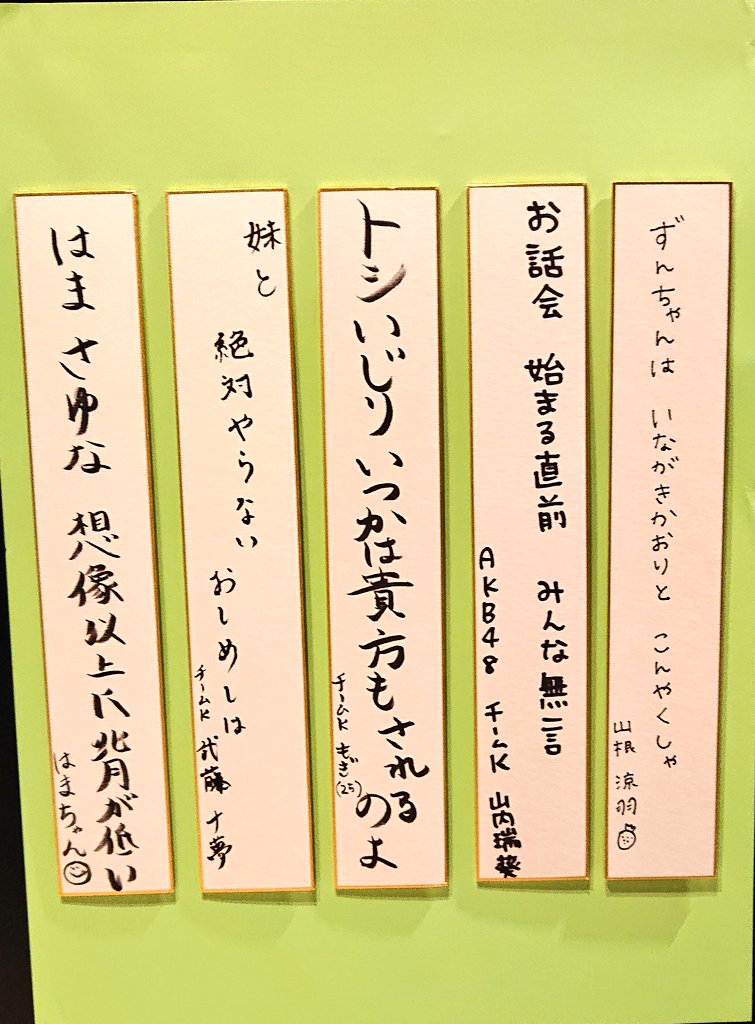 ずんちゃんは いながきかおりと こんやくしゃ
山根 涼羽
お話会 始まる直前 みんな無言
AKB48 チームK 山内瑞葵
トシいじり いつかは貴方もされるのよ
チームK もぎ(25)
妹と
絶対やらない
おしめしは
チームK 武藤 十夢
はま さゆな 想像以上に 背が低い
はまちゃん